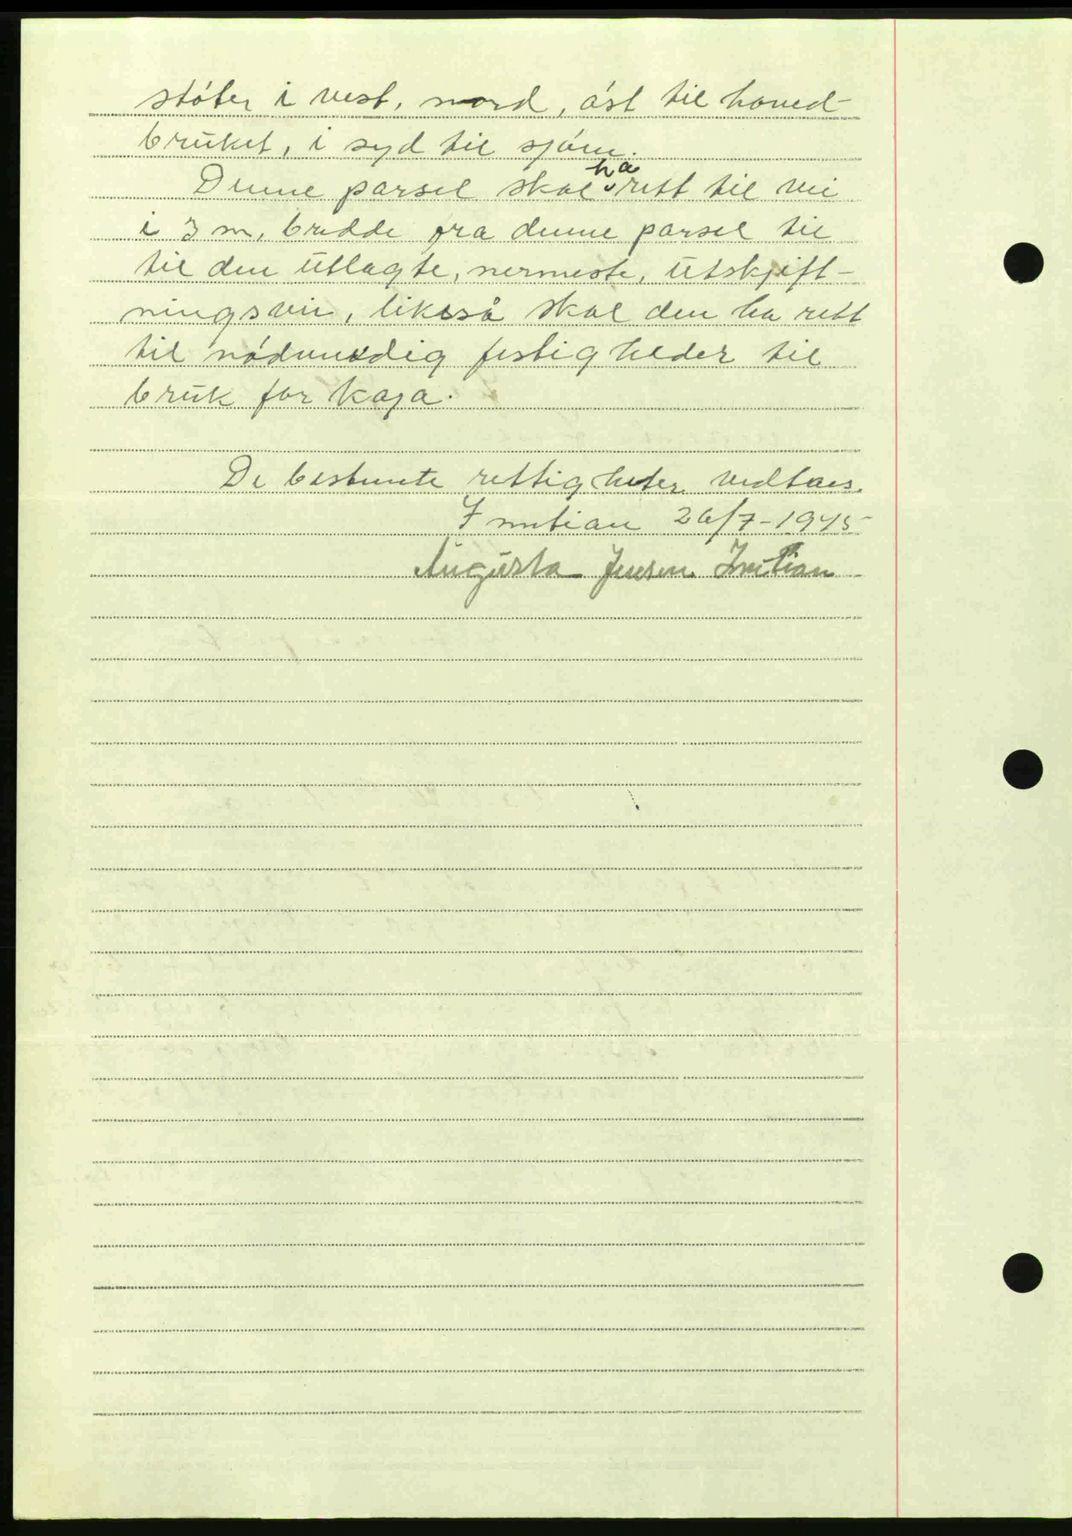 støter i vest, nord, øst til hoved-
bruket, i syd til sjøen.
Denne parsel skal ha rett til vei
i 3 m. bredde fra denne parsel til
til den utlagte, nermeste, utskjift-
ningsvei, likeså skal den ha rett
til nødvendig festigheder til
bruk for kaja.
De bestemte rettigheter vedtaes.
Inntian 26/7-1945
Augusta Jensen Inntian